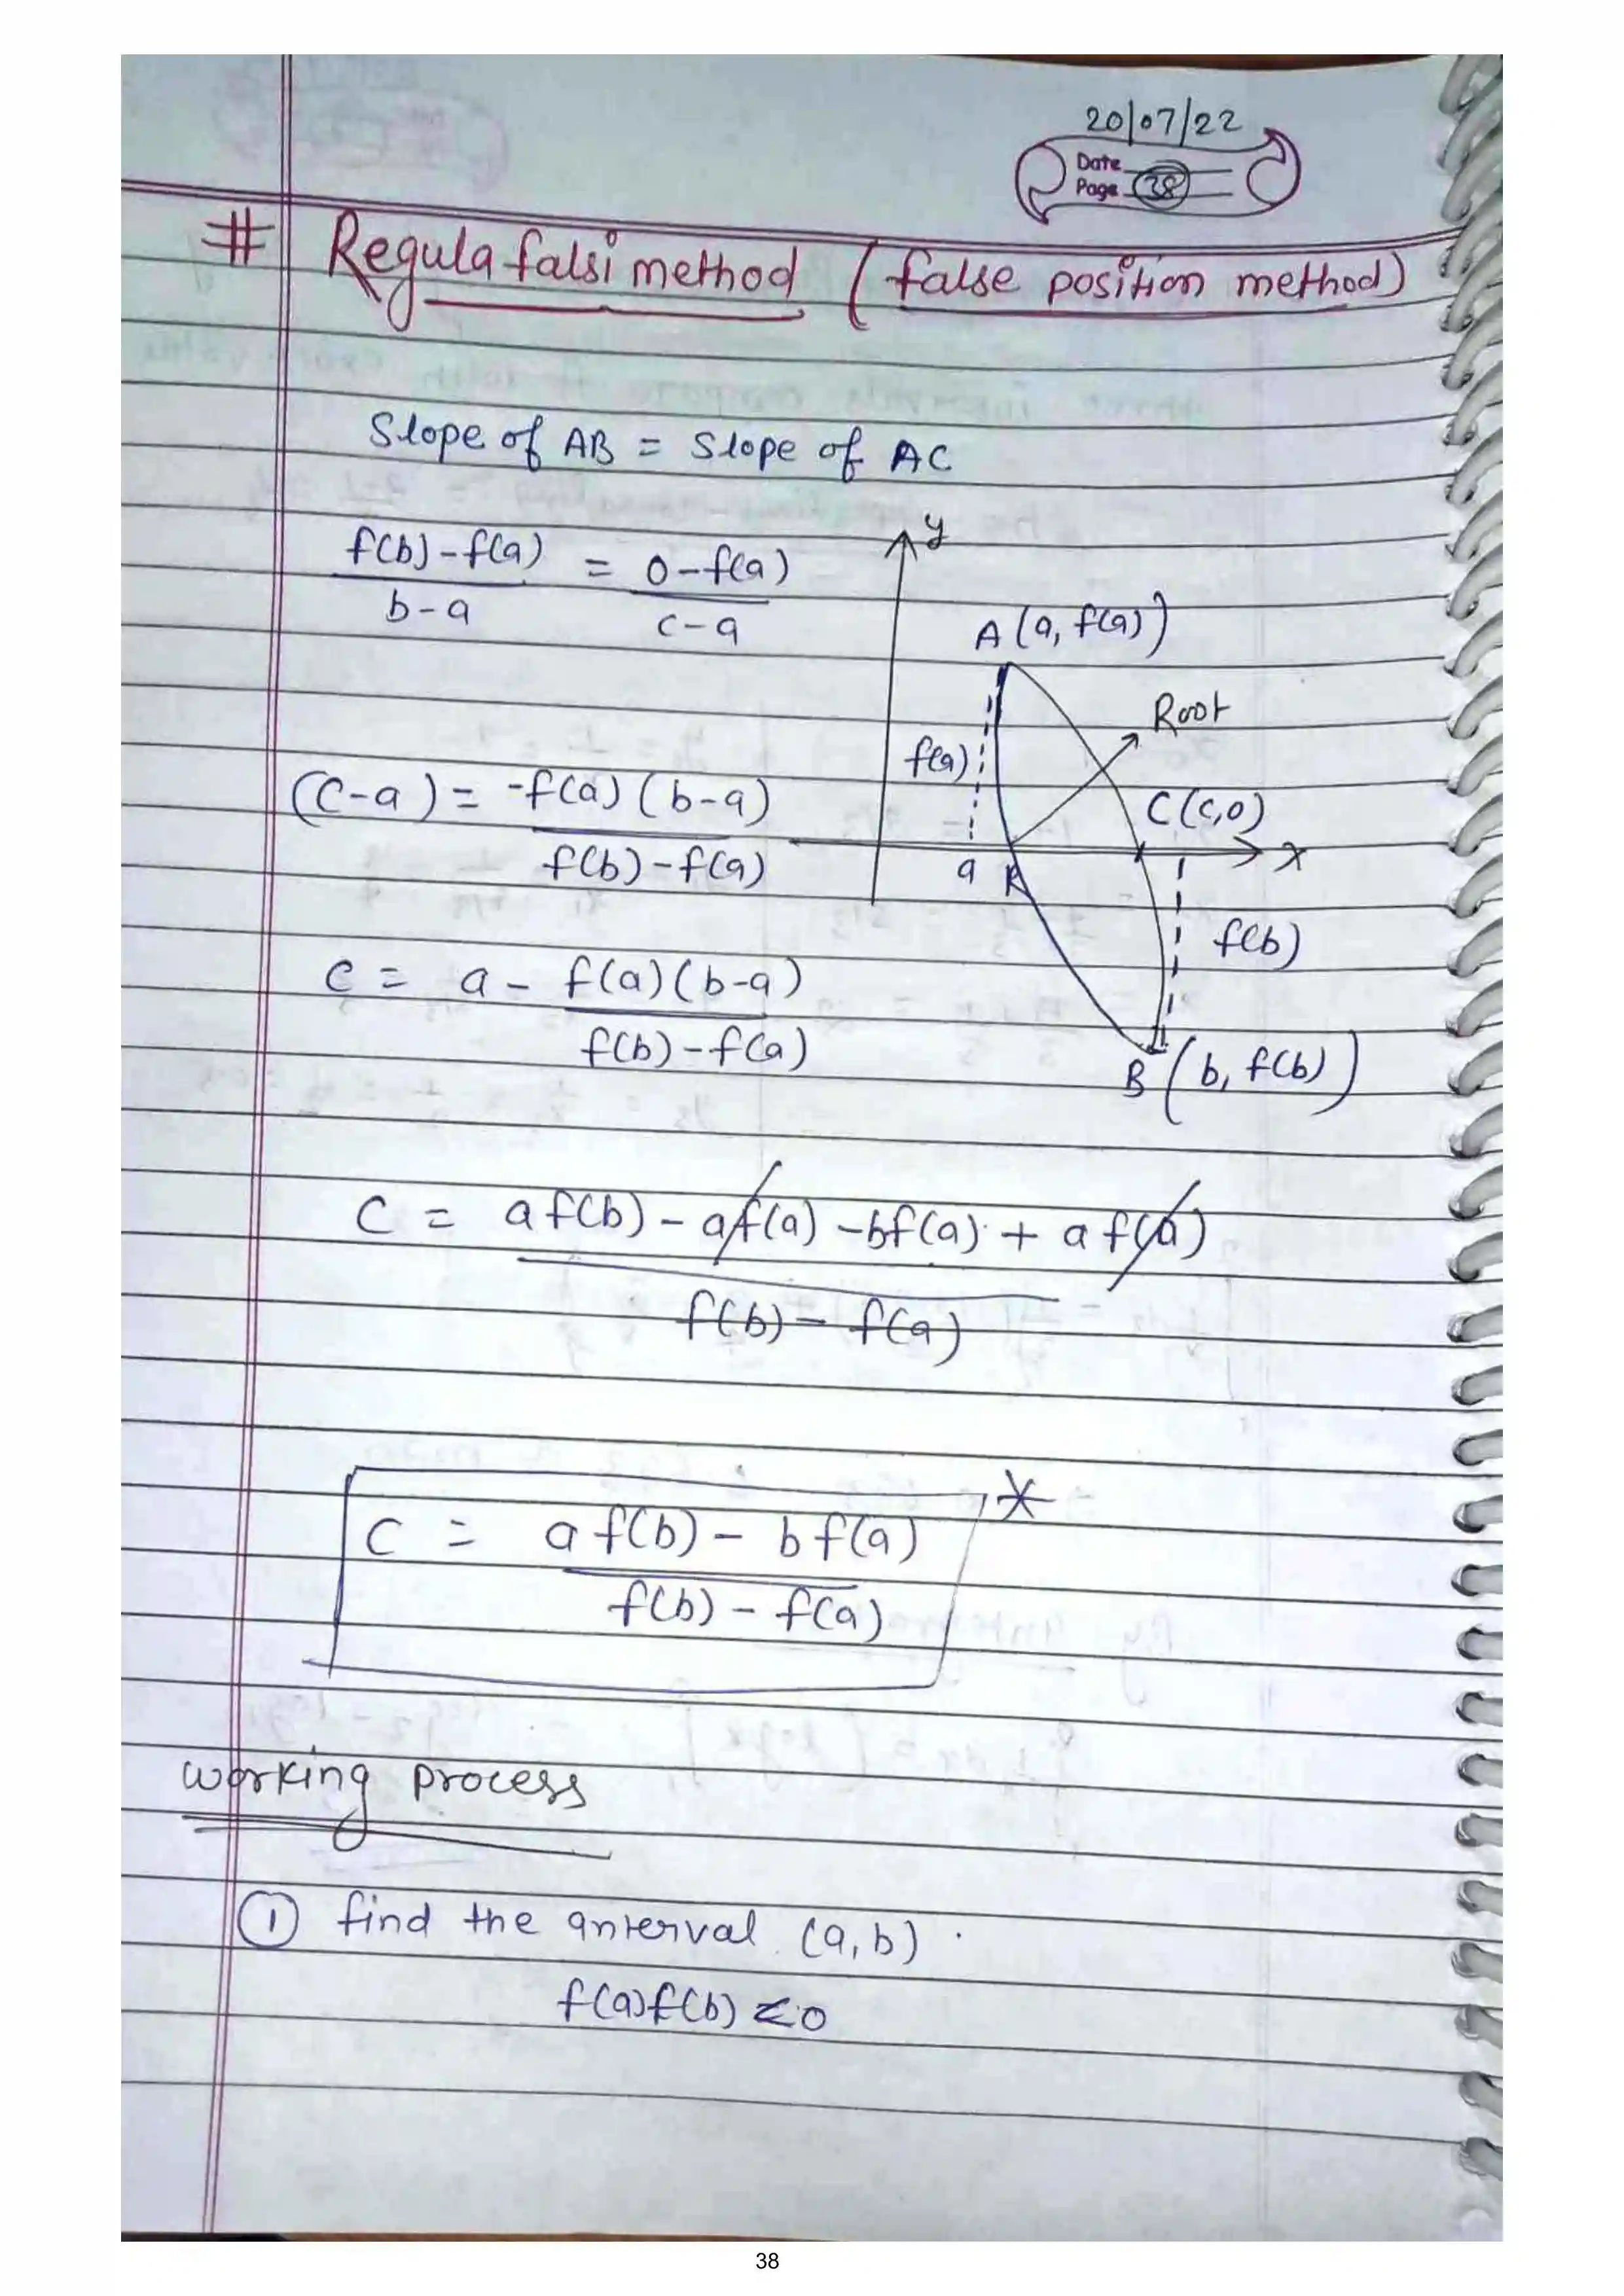 20/07/22
Date
Page 38
# Regula falsi method (false position method)
Slope of AB = Slope of AC
f(b)-f(a) / b-a = 0-f(a) / c-a
y
A (a, f(a))
Root
f(a)
(c-a) = -f(a)(b-a) / f(b)-f(a)
C(c,0)
x
a R
f(b)
c = a - f(a)(b-a) / f(b)-f(a)
B (b, f(b))
C = a f(b) - a f(a) - bf(a) + a f(a) / f(b) - f(a)
C = a f(b) - b f(a) / f(b) - f(a) *
working process
① find the interval (a,b).
f(a)f(b) < 0
38